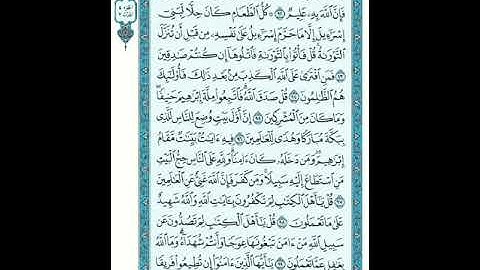 فَإِنَّ ٱللَّهَ بِهِۦ عَلِيمٌ كُلُّ ٱلطَّعَامِ كَانَ حِلًّا لِّبَنِيٓ
إِسْرَٰٓءِيلَ إِلَّا مَا حَرَّمَ إِسْرَٰٓءِيلُ عَلَىٰ نَفْسِهِۦ مِن قَبْلِ أَن تُنَزَّلَ
ٱلتَّوْرَىٰةُ قُلْ فَأْتُوا۟ بِٱلتَّوْرَىٰةِ فَٱتْلُوهَآ إِن كُنتُمْ صَٰدِقِينَ
فَمَنِ ٱفْتَرَىٰ عَلَى ٱللَّهِ ٱلْكَذِبَ مِنۢ بَعْدِ ذَٰلِكَ فَأُو۟لَٰٓئِكَ
هُمُ ٱلظَّٰلِمُونَ قُلْ صَدَقَ ٱللَّهُ فَٱتَّبِعُوا۟ مِلَّةَ إِبْرَٰهِيمَ حَنِيفًا
وَمَا كَانَ مِنَ ٱلْمُشْرِكِينَ إِنَّ أَوَّلَ بَيْتٍ وُضِعَ لِلنَّاسِ لَلَّذِى
بِبَكَّةَ مُبَارَكًا وَهُدًى لِّلْعَٰلَمِينَ فِيهِ ءَايَٰتٌۢ بَيِّنَٰتٌ مَّقَامُ
إِبْرَٰهِيمَ وَمَن دَخَلَهُۥ كَانَ ءَامِنًا وَلِلَّهِ عَلَى ٱلنَّاسِ حِجُّ ٱلْبَيْتِ
مَنِ ٱسْتَطَاعَ إِلَيْهِ سَبِيلًا وَمَن كَفَرَ فَإِنَّ ٱللَّهَ غَنِىٌّ عَنِ ٱلْعَٰلَمِينَ
قُلْ يَٰٓأَهْلَ ٱلْكِتَٰبِ لِمَ تَكْفُرُونَ بِـَٔايَٰتِ ٱللَّهِ وَٱللَّهُ شَهِيدٌ
عَلَىٰ مَا تَعْمَلُونَ قُلْ يَٰٓأَهْلَ ٱلْكِتَٰبِ لِمَ تَصُدُّونَ عَن
سَبِيلِ ٱللَّهِ مَنْ ءَامَنَ تَبْغُونَهَا عِوَجًا وَأَنتُمْ شُهَدَآءُ وَمَا ٱللَّهُ
بِغَٰفِلٍ عَمَّا تَعْمَلُونَ يَٰٓأَيُّهَا ٱلَّذِينَ ءَامَنُوٓا۟ إِن تُطِيعُوا۟ فَرِيقًا